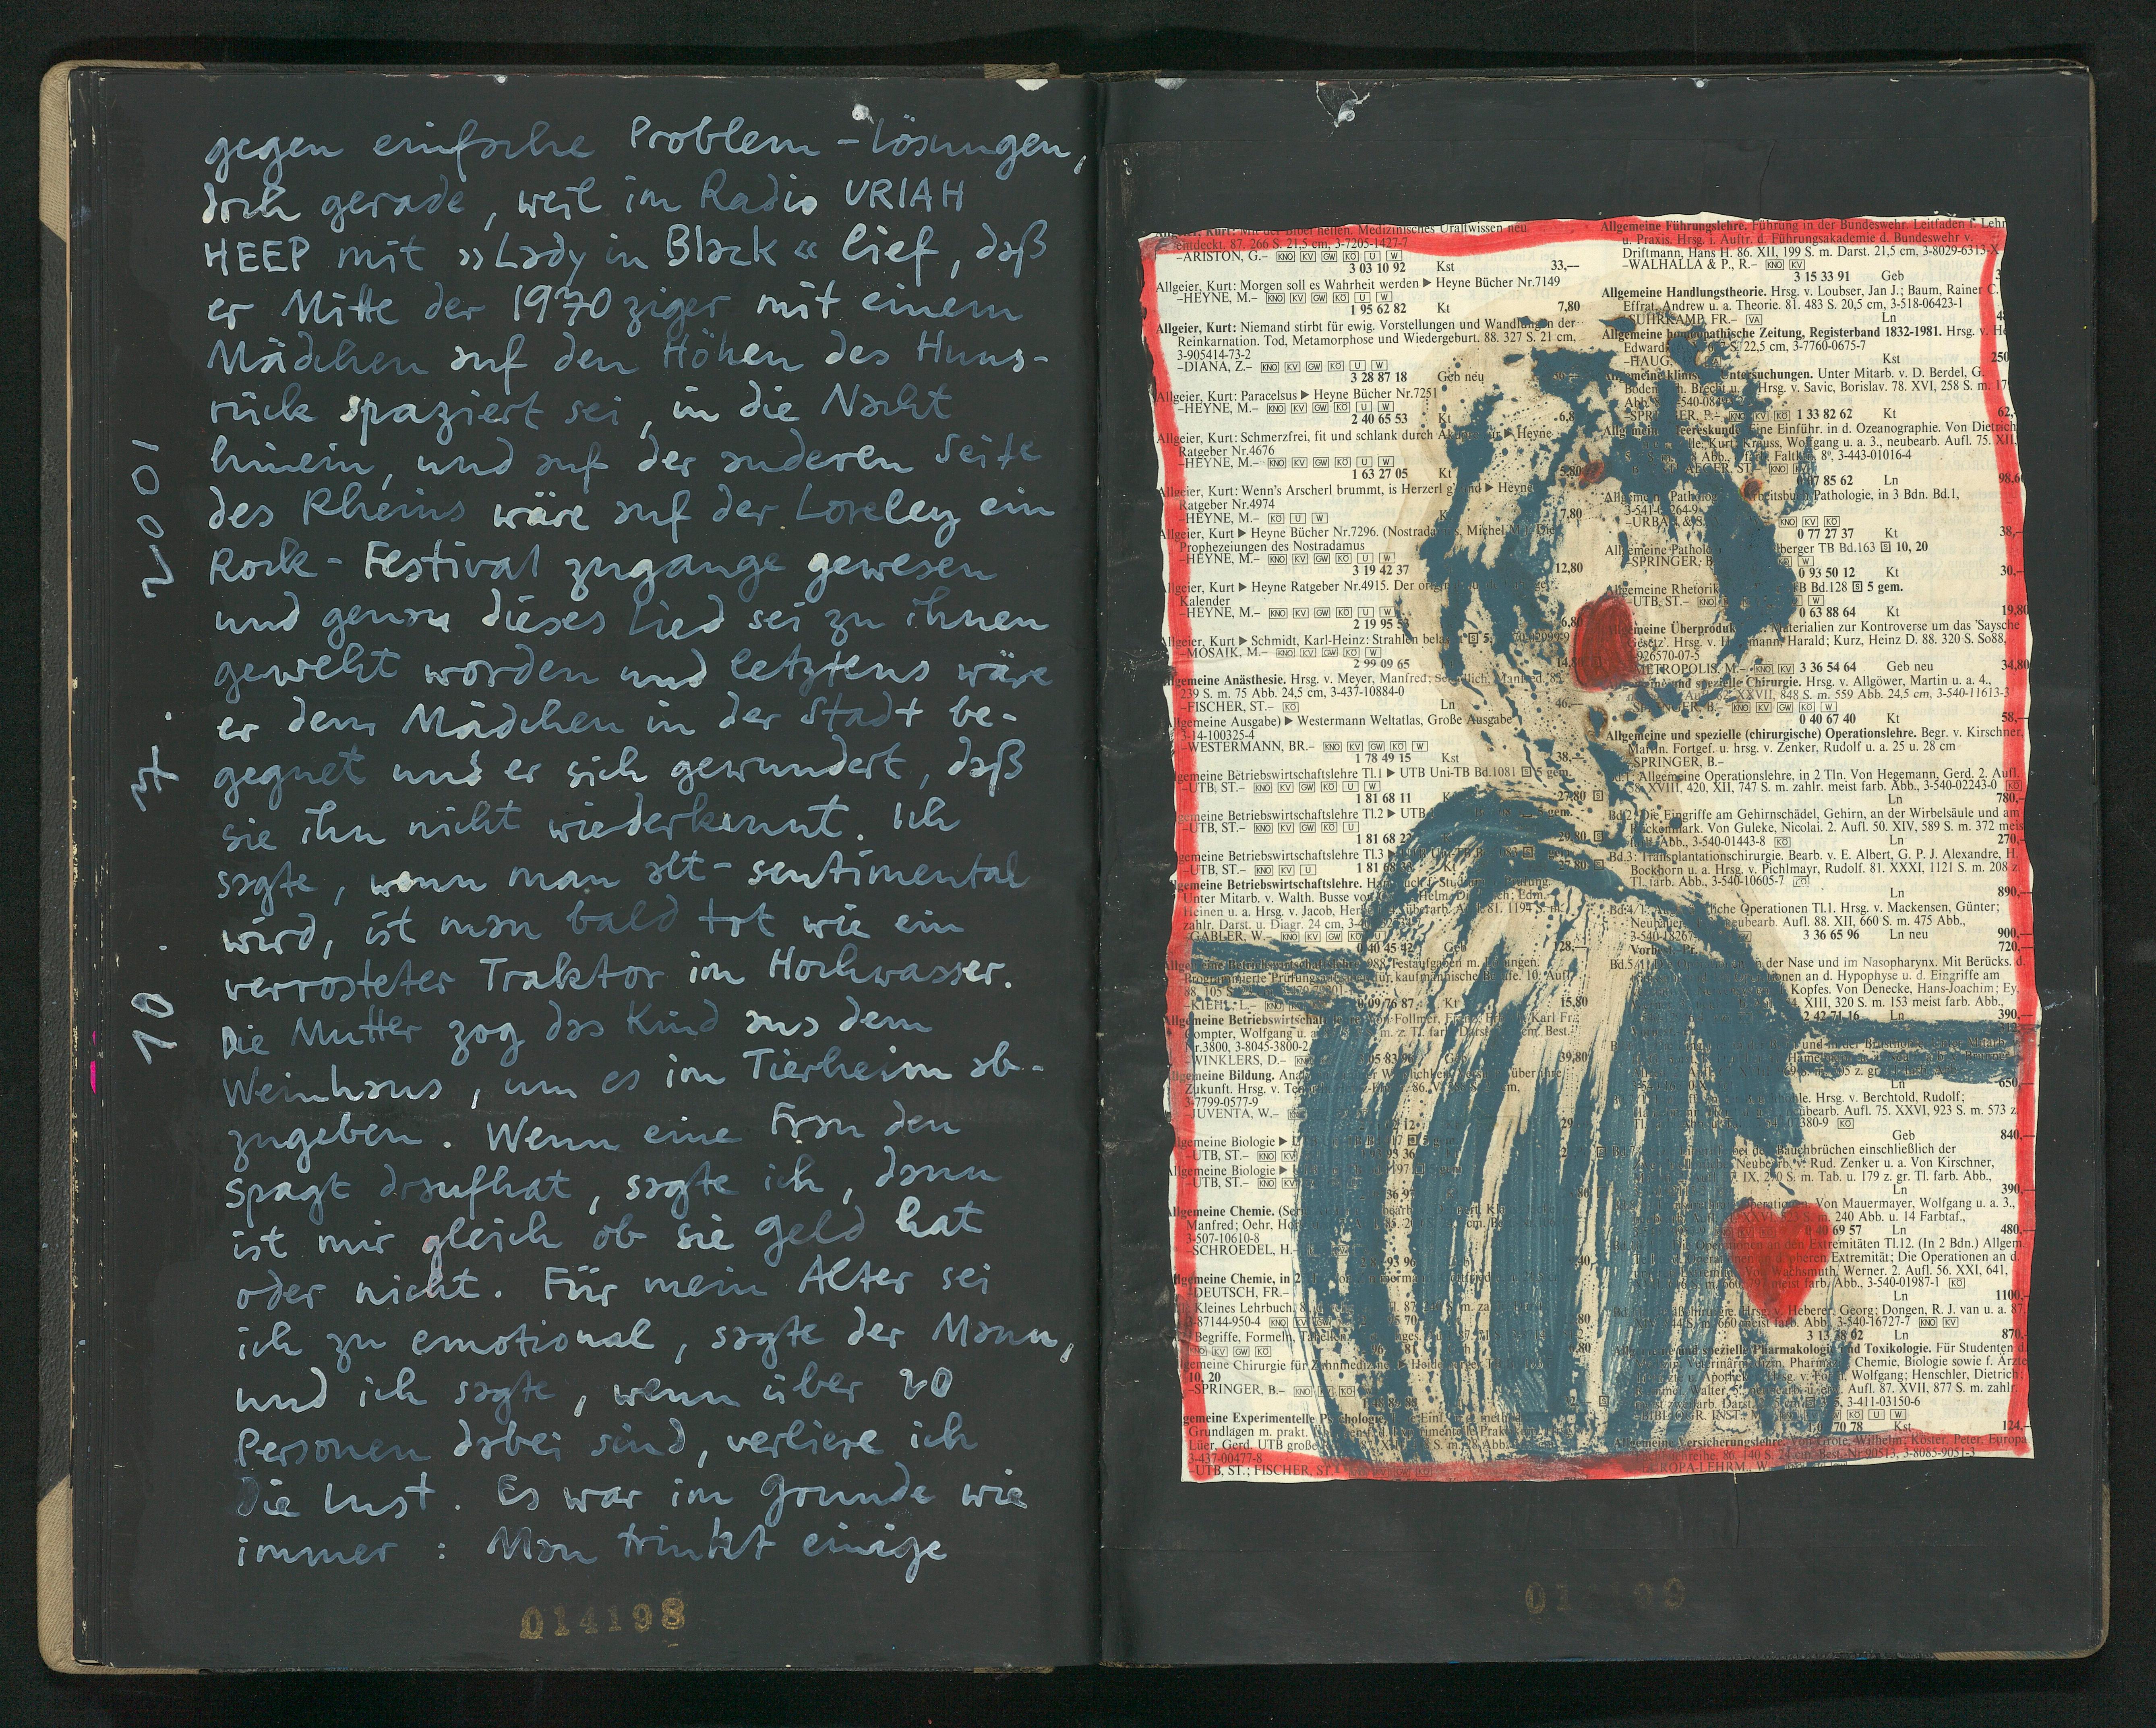 gegen einfache Problem-lösungen,
doch gerade, weil im Radio URIAH
HEEP mit »Lady in Black« lief, daß
er Mitte der 1970ziger mit einem
Mädchen auf den Höhen des Huns-
rück spaziert sei, in die Nacht
hinein, und auf der anderen Seite
des Rheins wäre auf der Loreley ein
Rock-Festival zugange gewesen
und genau dieses Lied sei zu ihnen
geweht worden und letztens wäre
er dem Mädchen in der Stadt be-
gegnet und er sich gewundert, daß
sie ihn nicht wiederkannt. Ich
sagte, wenn man alt-sentimental
wird, ist man bald tot wie ein
verrosteter Traktor im Hochwasser.
Die Mutter zog das Kind aus dem
Weinhaus, um es im Tierheim ab-
zugeben. Wenn eine Frau den
Spagt draufhat, sagte ich, dann
ist mir gleich ob sie Geld hat
oder nicht. Für mein Alter sei
ich zu emotional, sagte der Mann,
und ich sagte, wenn über 20
Personen dabei sind, verliere ich
die Lust. Es war im Grunde wie
immer: Man trinkt einige
10. 7. 2001
014198
Allgeier, Kurt: Mit der Bibel heilen. Medizinisches Uraltwissen neu
entdeckt. 87. 266 S. 21,5 cm, 3-7205-1427-7
–ARISTON, G.– KNO KV GW KÖ U W
3 03 10 92 Kst 33,—
Allgeier, Kurt: Morgen soll es Wahrheit werden ▶ Heyne Bücher Nr.7149
–HEYNE, M.– KNO KV GW KÖ U W
1 95 62 82 Kt 7,80
Allgeier, Kurt: Niemand stirbt für ewig. Vorstellungen und Wandlungen der
Reinkarnation. Tod, Metamorphose und Wiedergeburt. 88. 327 S. 21 cm,
3-905414-73-2
–DIANA, Z.– KNO KV GW KÖ U W
3 28 87 18 Geb neu
Allgeier, Kurt: Paracelsus ▶ Heyne Bücher Nr.7251
–HEYNE, M.– KNO KV GW KÖ U W
2 40 65 53 Kt 6,8
Allgeier, Kurt: Schmerzfrei, fit und schlank durch ▶ Heyne
Ratgeber Nr.4676
–HEYNE, M.– KNO KV GW KÖ U W
1 63 27 05 Kt 5,80
Allgeier, Kurt: Wenn's Arscherl brummt, is Herzerl ▶ Heyne
Ratgeber Nr.4974
–HEYNE, M.– KÖ U W
7,80
Allgeier, Kurt ▶ Heyne Bücher Nr.7296. (Nostradamus, Michel
Prophezeiungen des Nostradamus
–HEYNE, M.– KNO KV GW KÖ U W
3 19 42 37 12,80
Allgeier, Kurt ▶ Heyne Ratgeber Nr.4915. Der
Kalender
–HEYNE, M.– KNO KV GW KÖ U W
2 19 95 6,80
Allgeier, Kurt ▶ Schmidt, Karl-Heinz: Strahlen
–MOSAIK, M.– KNO KV GW KÖ W
2 99 09 65
Allgemeine Anästhesie. Hrsg. v. Meyer, Manfred;
239 S. m. 75 Abb. 24,5 cm, 3-437-10884-0
–FISCHER, ST.– KÖ Ln 46,—
Allgemeine Ausgabe) ▶ Westermann Weltatlas, Große Ausgabe
3-14-100325-4
–WESTERMANN, BR.– KNO KV GW KÖ W
1 78 49 15 Kst 38,—
Allgemeine Betriebswirtschaftslehre Tl.1 ▶ UTB Uni-TB Bd.1081 S 5 gem.
–UTB, ST.– KNO KV GW KÖ U W
1 81 68 11 27,80
Allgemeine Betriebswirtschaftslehre Tl.2 ▶ UTB
–UTB, ST.– KNO KV GW KÖ U
Allgemeine Betriebswirtschaftslehre Tl.3 ▶
–UTB, ST.– KNO KV U
Allgemeine Betriebswirtschaftslehre.
Unter Mitarb. v. Walth. Busse von
Heinen u. a. Hrsg. v. Jacob,
zahlr. Darst. u. Diagr. 24 cm,
–GABLER, W.– KNO KV GW KÖ
0 40 45 42 128,—
–KIEHL, L.– 0 09 76 87 Kt 15,80
Allgemeine
Compter, Wolfgang u. a.
Nr.3800, 3-8045-3800-2
–WINKLERS, D.– 39,80
Allgemeine Bildung.
Zukunft. Hrsg. v.
3-7799-0577-9
–JUVENTA, W.–
Allgemeine Biologie ▶
–UTB, ST.– KNO KV
Allgemeine Biologie ▶
–UTB, ST.– KNO KV
Allgemeine Chemie.
Manfred; Oehr,
3-507-10610-8
–SCHROEDEL, H.–
Allgemeine Chemie, in 2
–DEUTSCH, FR.–
Kleines Lehrbuch.
3-87144-950-4 KNO KV
Begriffe, Formeln, Tabellen
KV GW KÖ
Allgemeine Chirurgie für Zahnmediziner
10, 20
–SPRINGER, B.– KNO
Allgemeine Experimentelle Psychologie.
Grundlagen m. prakt.
Lüer, Gerd. UTB große
3-437-00477-8
–UTB, ST.; FISCHER, ST.
Allgemeine Führungslehre. Führung in der Bundeswehr. Leitfaden f. Lehre
u. Praxis. Hrsg. i. Auftr. d. Führungsakademie d. Bundeswehr v.
Driftmann, Hans H. 86. XII, 199 S. m. Darst. 21,5 cm, 3-8029-6313-X
–WALHALLA & P., R.– KNO KV
3 15 33 91 Geb
Allgemeine Handlungstheorie. Hrsg. v. Loubser, Jan J.; Baum, Rainer C.
Effrat, Andrew u. a. Theorie. 81. 483 S. 20,5 cm, 3-518-06423-1
–SUHRKAMP, FR.– VA Ln
Allgemeine homöopathische Zeitung, Registerband 1832-1981. Hrsg. v.
Edward 22,5 cm, 3-7760-0675-7
–HAUG, Kst 250
Allgemeine klinische Untersuchungen. Unter Mitarb. v. D. Berdel, G.
Hrsg. v. Savic, Borislav. 78. XVI, 258 S. m. 17
–SPRINGER, B.– KNO KV KÖ 1 33 82 62 Kt 62,
Allgemeine Meereskunde. Eine Einführ. in d. Ozeanographie. Von Dietrich
Krauss, Wolfgang u. a. 3., neubearb. Aufl. 75. XII,
8°, 3-443-01016-4
07 85 62 Ln 98,60
Allgemeine Pathologie. Arbeitsbuch Pathologie, in 3 Bdn. Bd.1,
–URBAN & S. KNO KV KÖ
0 77 27 37 Kt 38,—
TB Bd.163 S 10, 20
–SPRINGER, B.
0 93 50 12 Kt 30,—
Allgemeine Rhetorik Bd.128 S 5 gem.
–UTB, ST.–
0 63 88 64 Kt 19,80
Materialien zur Kontroverse um das 'Saysche
Gesetz'. Hrsg. v. Harald; Kurz, Heinz D. 88. 320 S. So88,
926570-07-5
–METROPOLIS, M.– KNO KV 3 36 54 64 Geb neu 34,80
Allgemeine und spezielle Chirurgie. Hrsg. v. Allgöwer, Martin u. a. 4.,
XXVII, 848 S. m. 559 Abb. 24,5 cm, 3-540-11613-3
–SPRINGER, B.– KNO KV GW KÖ W
0 40 67 40 Kt 58,—
Allgemeine und spezielle (chirurgische) Operationslehre. Begr. v. Kirschner,
Martin. Fortgef. u. hrsg. v. Zenker, Rudolf u. a. 25 u. 28 cm
–SPRINGER, B.–
Bd.1: Allgemeine Operationslehre, in 2 Tln. Von Hegemann, Gerd. 2. Aufl.
58. XVIII, 420, XII, 747 S. m. zahlr. meist farb. Abb., 3-540-02243-0 KÖ
Ln 780,—
Bd.2: Die Eingriffe am Gehirnschädel, Gehirn, an der Wirbelsäule und am
Rückenmark. Von Guleke, Nicolai. 2. Aufl. 50. XIV, 589 S. m. 372 meist
farb. Abb., 3-540-01443-8 KÖ Ln 270,—
Bd.3: Transplantationschirurgie. Bearb. v. E. Albert, G. P. J. Alexandre, H.
Bockhorn u. a. Hrsg. v. Pichlmayr, Rudolf. 81. XXXI, 1121 S. m. 208 z.
Tl. farb. Abb., 3-540-10605-7 KÖ
Ln 890,—
Operationen Tl.1. Hrsg. v. Mackensen, Günter;
Neubearb. Aufl. 88. XII, 660 S. m. 475 Abb.,
3 36 65 96 Ln neu 900,—
720,—
der Nase und im Nasopharynx. Mit Berücks. d.
an d. Hypophyse u. d. Eingriffe am
Kopfes. Von Denecke, Hans-Joachim; Ey,
XIII, 320 S. m. 153 meist farb. Abb.,
2 42 71 16 Ln 390,—
Ln 650,—
Hrsg. v. Berchtold, Rudolf;
Neubearb. Aufl. 75. XXVI, 923 S. m. 573 z.
Geb 840,—
bei den Bauchbrüchen einschließlich der
Neubearb. v. Rud. Zenker u. a. Von Kirschner,
IX, 290 S. m. Tab. u. 179 z. gr. Tl. farb. Abb.,
Ln 390,—
Operationen. Von Mauermayer, Wolfgang u. a. 3.,
240 Abb. u. 14 Farbtaf.,
69 57 Ln 480,—
Extremitäten Tl.12. (In 2 Bdn.) Allgem.
Extremität; Die Operationen an d.
Wachsmuth, Werner. 2. Aufl. 56. XXI, 641,
farb. Abb., 3-540-01987-1 KÖ
Ln 1100,—
Hrsg. v. Heberer, Georg; Dongen, R. J. van u. a. 87.
farb. Abb., 3-540-16727-7 KNO KV
3 13 38 02 Ln 870,—
Allgemeine und spezielle Pharmakologie und Toxikologie. Für Studenten d.
Medizin, Veterinärmedizin, Pharmazie, Chemie, Biologie sowie f. Ärzte
Wolfgang; Henschler, Dietrich;
Aufl. 87. XVII, 877 S. m. zahlr.
3-411-03150-6
–BIBLIOGR. INST., M. KÖ U W
70 78 Kst 124,—
Allgemeine Versicherungslehre. Von Grote, Wilhelm; Köster, Peter. Europa
86. 140 S. 24 cm. Best.-Nr.90513, 3-8085-9051-3